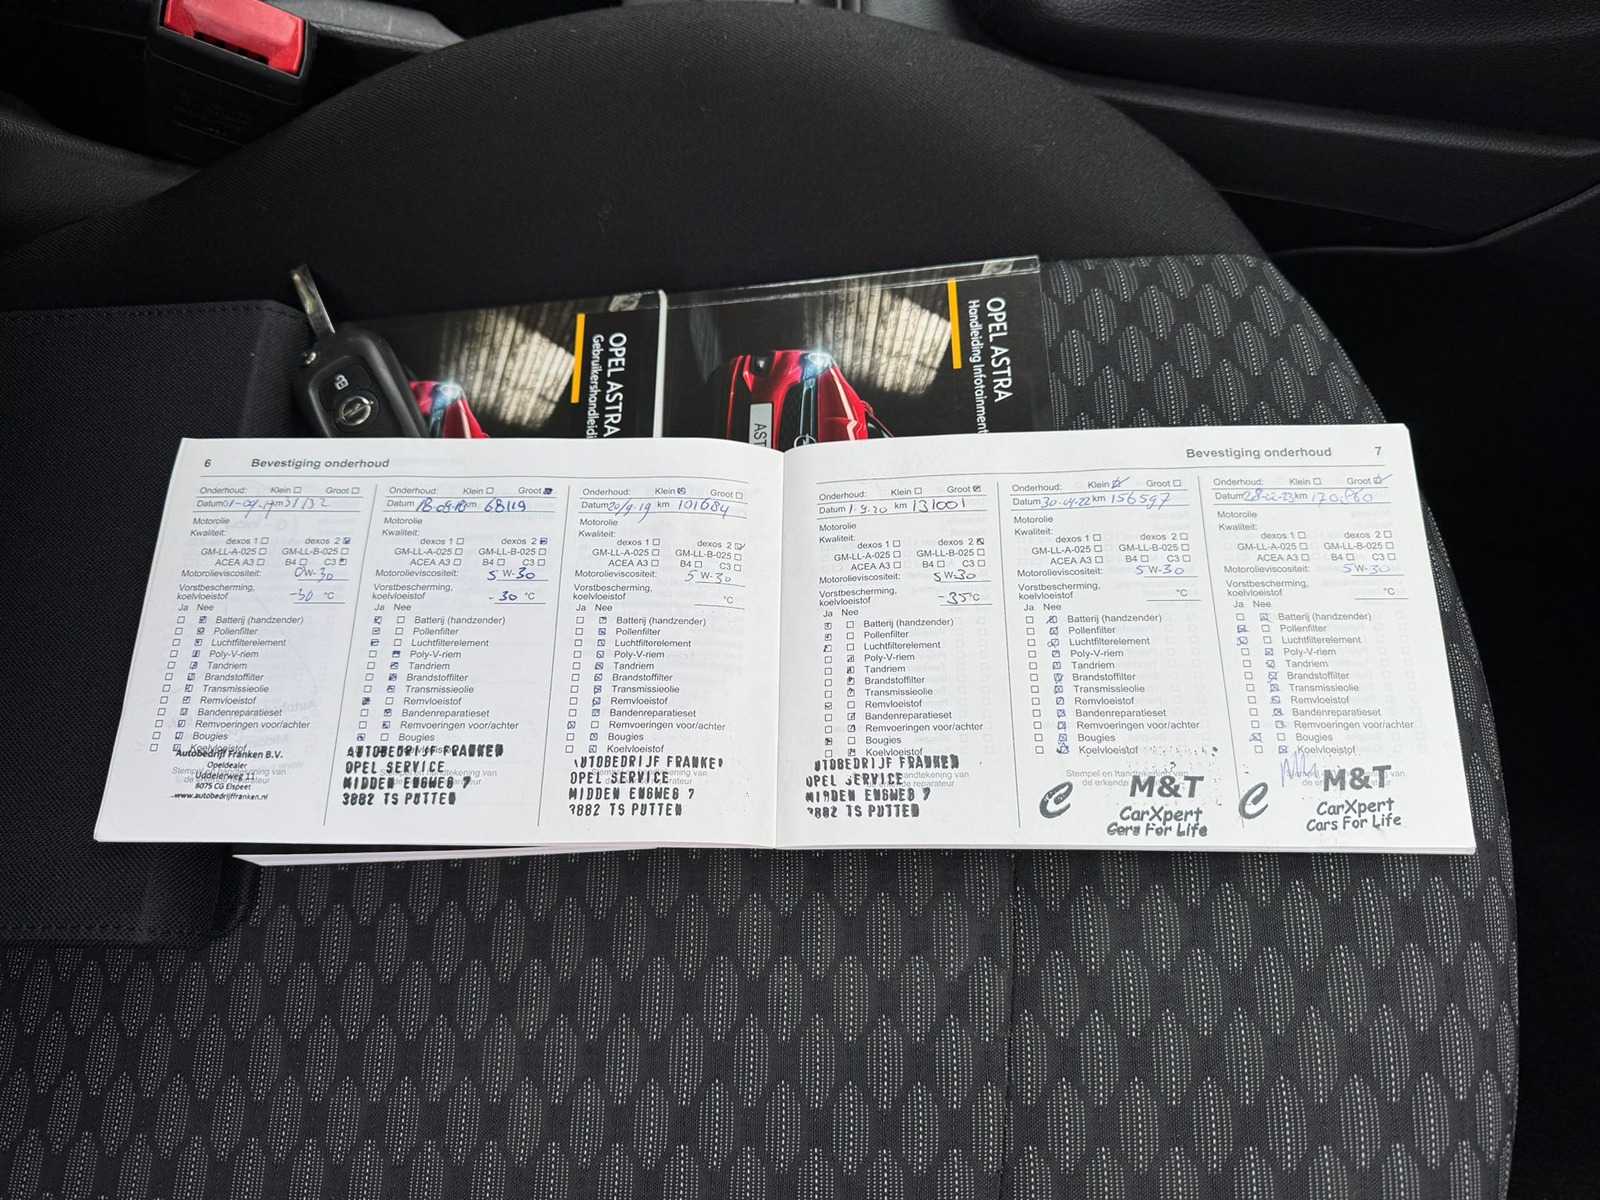 OPEL ASTRA
OPEL ASTRA
Handleiding Infotainment
6 Bevestiging onderhoud
Onderhoud: Klein Groot
Datum km
Motorolie
Kwaliteit:
dexos 1 dexos 2
GM-LL-A-025 GM-LL-B-025
ACEA A3 B4 C3
Motorolieviscositeit: 0W-30
Vorstbescherming,
koelvloeistof -30 °C
Ja Nee
Batterij (handzender)
Pollenfilter
Luchtfilterelement
Poly-V-riem
Tandriem
Brandstoffilter
Transmissieolie
Remvloeistof
Bandenreparatieset
Remvoeringen voor/achter
Bougies
Koelvloeistof
Autobedrijf Franken B.V.
Opeldealer
Uddelerweg 11
8075 CG Elspeet
www.autobedrijffranken.nl
Onderhoud: Klein Groot
Datum km 68119
Motorolie
Kwaliteit:
dexos 1 dexos 2
GM-LL-A-025 GM-LL-B-025
ACEA A3 B4 C3
Motorolieviscositeit: 5W-30
Vorstbescherming,
koelvloeistof -30 °C
Ja Nee
Batterij (handzender)
Pollenfilter
Luchtfilterelement
Poly-V-riem
Tandriem
Brandstoffilter
Transmissieolie
Remvloeistof
Bandenreparatieset
Remvoeringen voor/achter
Bougies
AUTOBEDRIJF FRANKEN
OPEL SERVICE
MIDDEN ENGWEG 7
3882 TS PUTTEN
Onderhoud: Klein Groot
Datum 20/9-19 km 101684
Motorolie
Kwaliteit:
dexos 1 dexos 2
GM-LL-A-025 GM-LL-B-025
ACEA A3 B4 C3
Motorolieviscositeit: 5W-30
Vorstbescherming,
koelvloeistof °C
Ja Nee
Batterij (handzender)
Pollenfilter
Luchtfilterelement
Poly-V-riem
Tandriem
Brandstoffilter
Transmissieolie
Remvloeistof
Bandenreparatieset
Remvoeringen voor/achter
Bougies
Koelvloeistof
AUTOBEDRIJF FRANKEN
OPEL SERVICE
MIDDEN ENGWEG 7
3882 TS PUTTEN
Bevestiging onderhoud 7
Onderhoud: Klein Groot
Datum 1-9-20 km 131001
Motorolie
Kwaliteit:
dexos 1 dexos 2
GM-LL-A-025 GM-LL-B-025
ACEA A3 B4 C3
Motorolieviscositeit: 5W-30
Vorstbescherming,
koelvloeistof -35°C
Ja Nee
Batterij (handzender)
Pollenfilter
Luchtfilterelement
Poly-V-riem
Tandriem
Brandstoffilter
Transmissieolie
Remvloeistof
Bandenreparatieset
Remvoeringen voor/achter
Bougies
Koelvloeistof
AUTOBEDRIJF FRANKEN
OPEL SERVICE
MIDDEN ENGWEG 7
3882 TS PUTTEN
Onderhoud: Klein Groot
Datum 30-04-22 km 156597
Motorolie
Kwaliteit:
dexos 1 dexos 2
GM-LL-A-025 GM-LL-B-025
ACEA A3 B4 C3
Motorolieviscositeit: 5W-30
Vorstbescherming,
koelvloeistof °C
Ja Nee
Batterij (handzender)
Pollenfilter
Luchtfilterelement
Poly-V-riem
Tandriem
Brandstoffilter
Transmissieolie
Remvloeistof
Bandenreparatieset
Remvoeringen voor/achter
Bougies
Koelvloeistof
M&T
CarXpert
Cars For Life
Onderhoud: Klein Groot
Datum km
Motorolie
Kwaliteit:
dexos 1 dexos 2
GM-LL-A-025 GM-LL-B-025
ACEA A3 B4 C3
Motorolieviscositeit: 5W-30
Vorstbescherming,
koelvloeistof °C
Ja Nee
Batterij (handzender)
Pollenfilter
Luchtfilterelement
Poly-V-riem
Tandriem
Brandstoffilter
Transmissieolie
Remvloeistof
Bandenreparatieset
Remvoeringen voor/achter
Bougies
Koelvloeistof
M&T
CarXpert
Cars For Life